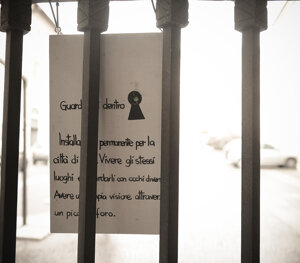 Guard dentro
Installa permanente per la
città di Vivere gli stessi
luoghi e ardarli con occhi diver
Avere u pia visione attraver
un picc foro.